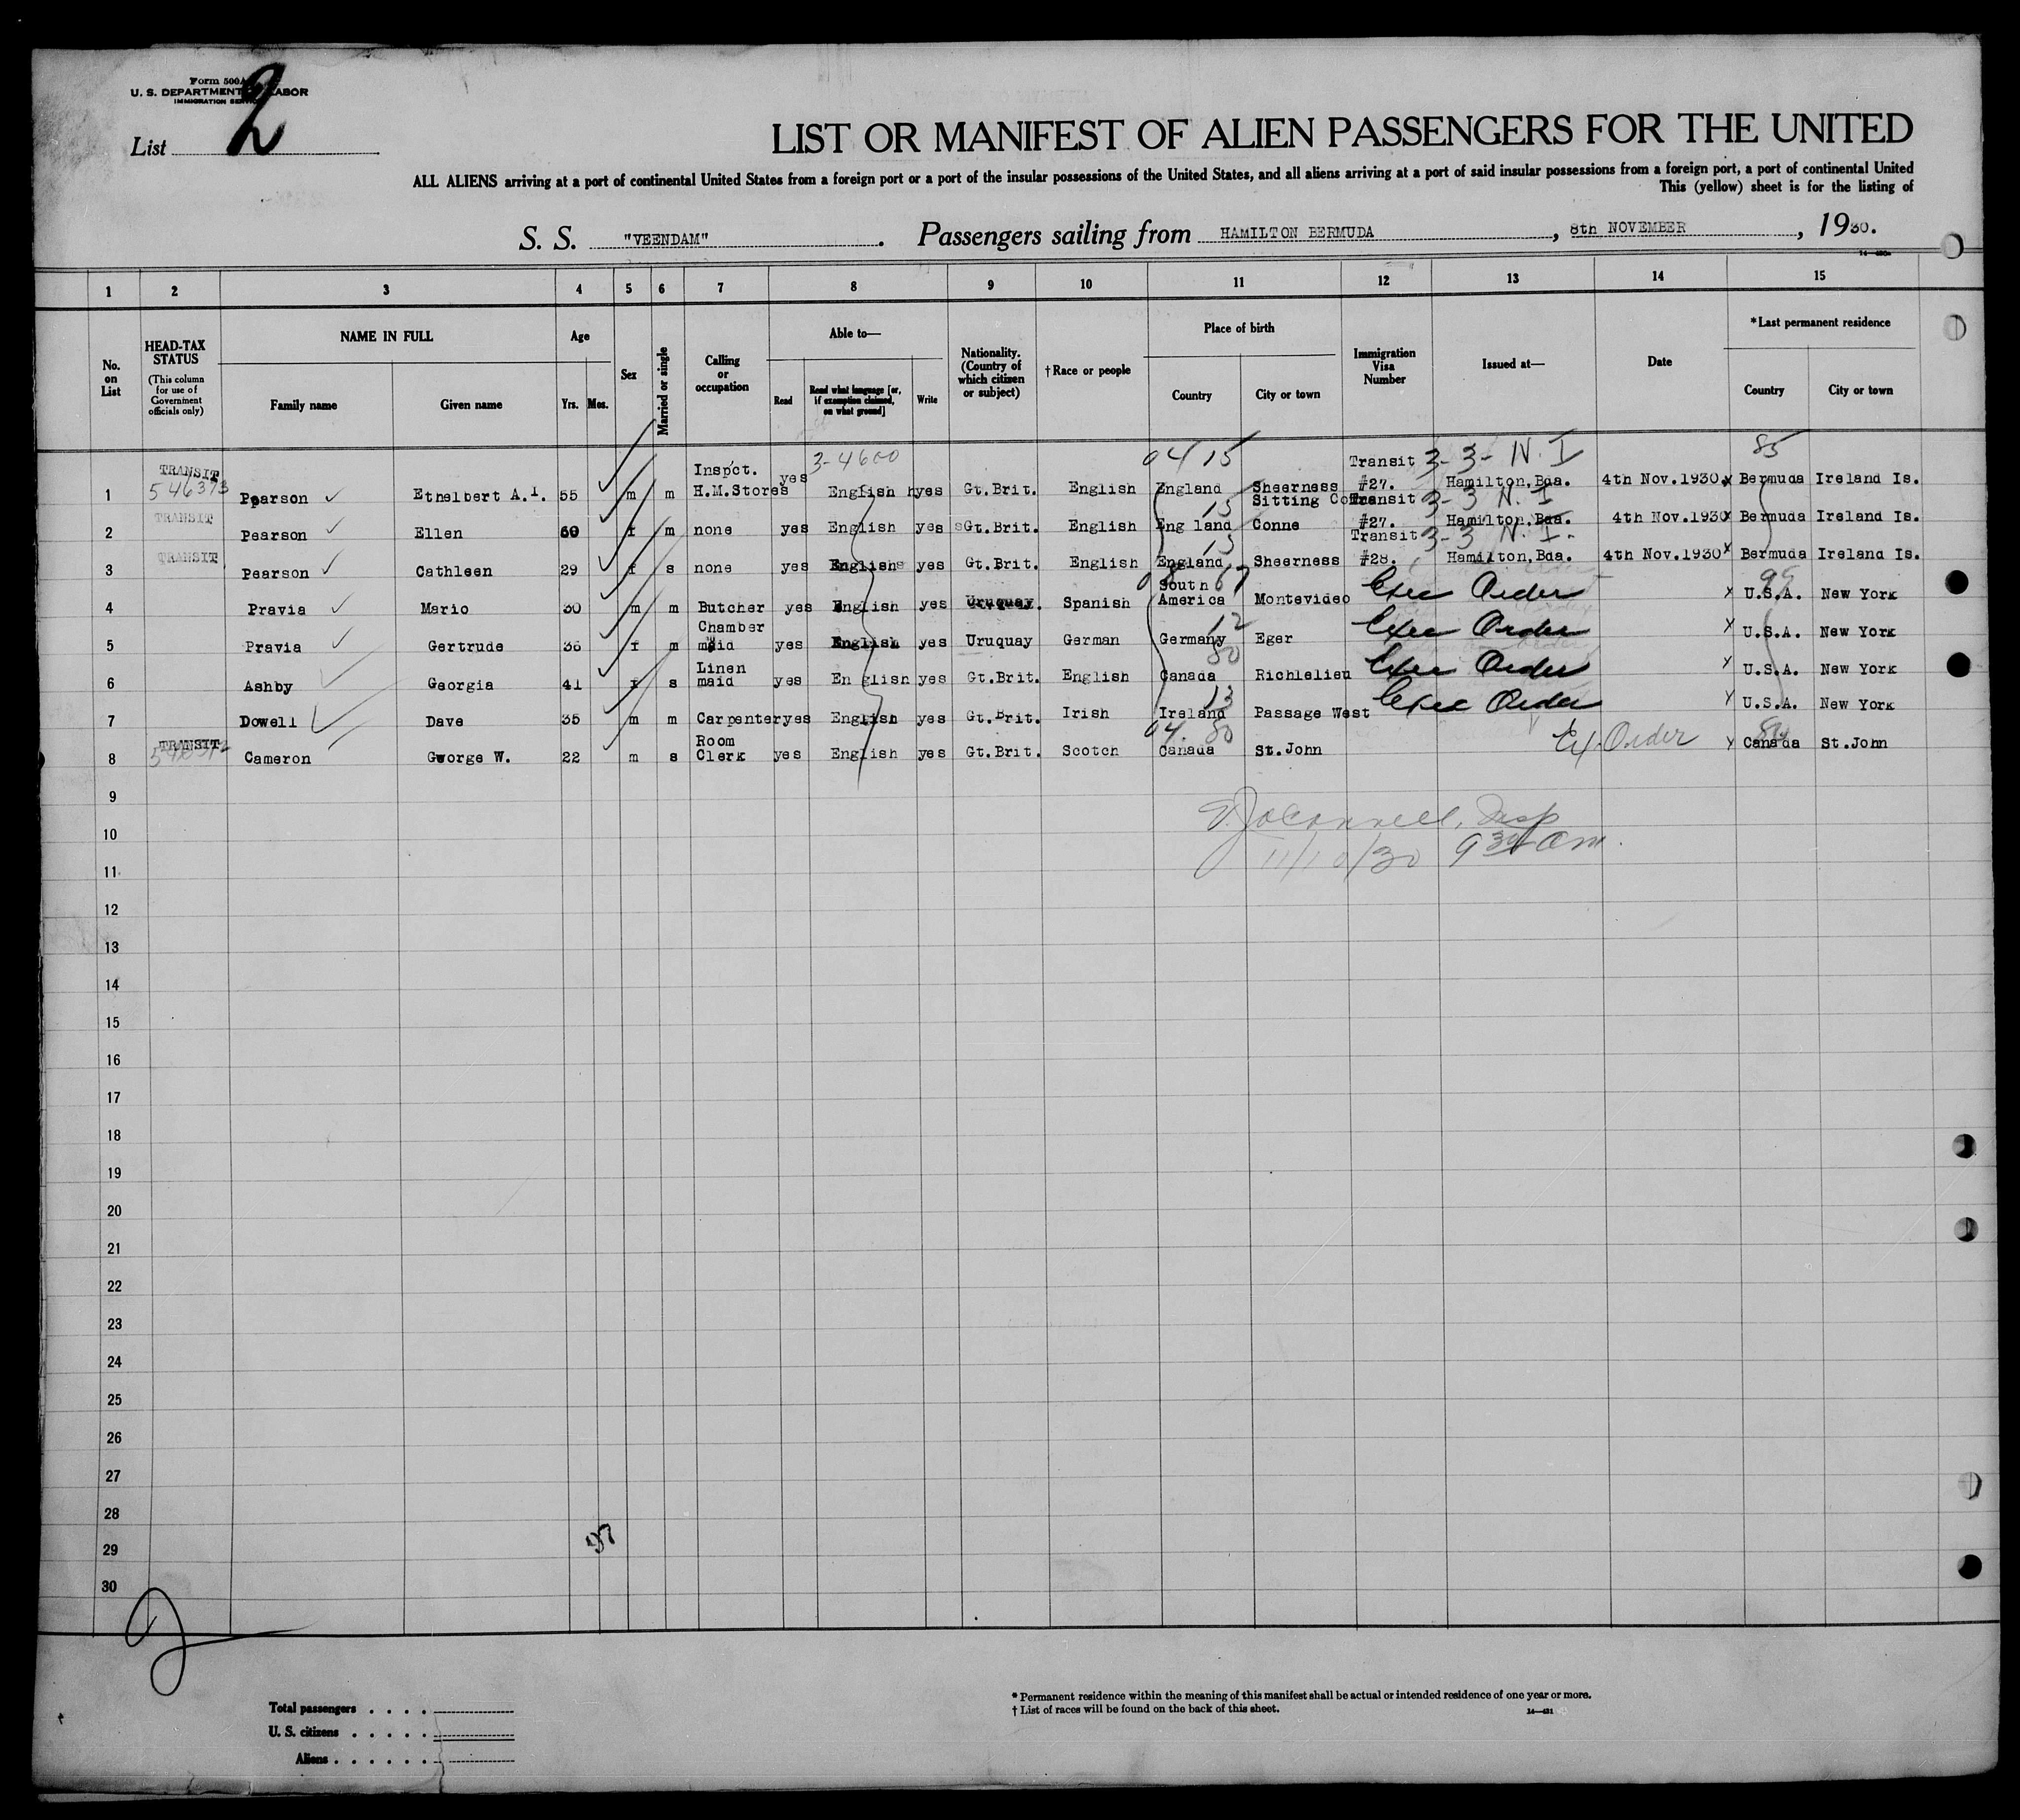 Form 500A
U. S. DEPARTMENT OF LABOR
IMMIGRATION SERVICE
List 2
LIST OR MANIFEST OF ALIEN PASSENGERS FOR THE UNITED
ALL ALIENS arriving at a port of continental United States from a foreign port or a port of the insular possessions of the United States, and all aliens arriving at a port of said insular possessions from a foreign port, a port of continental United
This (yellow) sheet is for the listing of
S. S. "VEENDAM". Passengers sailing from HAMILTON BERMUDA, 8th NOVEMBER, 1930.
1 2 3 4 5 6 7 8 9 10 11 12 13 14 15
No. on List
HEAD-TAX STATUS (This column for use of Government officials only)
NAME IN FULL Family name Given name
Age Yrs. Mos.
Sex
Married or single
Calling or occupation
Able to— Read Read what language [or, if exemption claimed, on what ground] Write
Nationality. (Country of which citizen or subject)
†Race or people
Place of birth Country City or town
Immigration Visa Number
Issued at—
Date
*Last permanent residence Country City or town
3-4600 04 15 3-3- N. I 85
1 TRANSIT 546373 Pearson Ethelbert A.I. 55 m m Inspct. H.M.Stores yes English yes Gt.Brit. English England Sheerness Transit #27. Hamilton,Bda. 4th Nov.1930 x Bermuda Ireland Is.
15 3-3 N. I
2 TRANSIT Pearson Ellen 60 f m none yes English yes Gt.Brit. English Eng land Sitting Conne Transit #27. Hamilton,Bda. 4th Nov.1930 x Bermuda Ireland Is.
15 3-3 N. I.
3 TRANSIT Pearson Cathleen 29 f s none yes English yes Gt.Brit. English England Sheerness Transit #28. Hamilton,Bda. 4th Nov.1930 x Bermuda Ireland Is.
67 99
4 Pravia Mario 30 m m Butcher yes English yes Uruquay. Spanish South America Montevideo Exec Order x U.S.A. New York
12
5 Pravia Gertrude 36 f m Chamber maid yes English yes Uruquay German Germany Eger Exec Order x U.S.A. New York
80
6 Ashby Georgia 41 f s Linen maid yes En glish yes Gt.Brit. English Canada Richlelieu Exec Order x U.S.A. New York
13
7 Dowell Dave 35 m m Carpenter yes English yes Gt.Brit. Irish Ireland Passage West Exec Order x U.S.A. New York
04. 80
8 TRANSIT Cameron Gworge W. 22 m s Room Clerk yes English yes Gt.Brit. Scotch Canada St.John Ex. Order x Canada St.John
9
10
11
O'Connell, Insp
11/10/30 9 30 am.
12
13
14
15
16
17
18
19
20
21
22
23
24
25
26
27
28
29
30
Total passengers
U. S. citizens
Aliens
* Permanent residence within the meaning of this manifest shall be actual or intended residence of one year or more.
† List of races will be found on the back of this sheet.